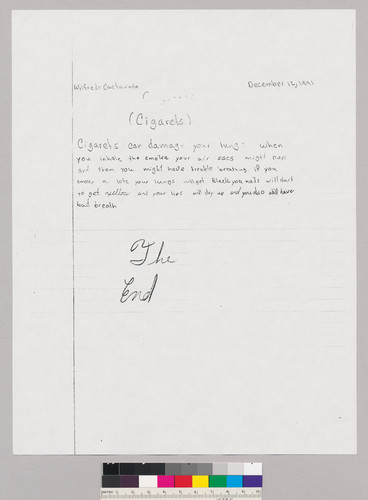 Wilfredo December 12, 1991
(Cigarets)
Cigarets can damage your lung. when
you inhale the smoke your air sacs might
and then you might have trouble breathing if you
smoke a lote your lungs will get Black you nails will start
to get yellow and your lips will dry up and you also will have
bad breath
The
End